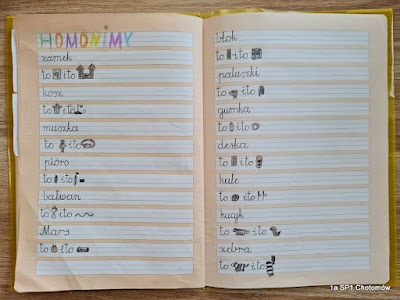 HOMONIMY
zamek
to i to
kosz
to i to
muszka
to i to
pióro
to i to
bałwan
to i to
Mars
to i to
blok
to i to
pałeczki
to i to
gumka
to i to
deska
to i to
kule
to i to
kucyk
to i to
zebra
to i to
1a SP1 Chotomów